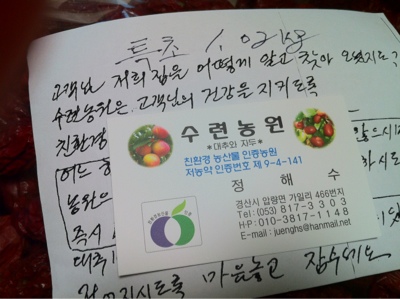 특초 1.02상
고객님 저희집을 어떻게 알고 찾아 오셨지요?
수련농원은 고객님의 건강을 지키도록
친환경
수련농원
*대추와 자두*
친환경 농산물 인증농원
저농약 인증번호 제 9-4-141
정 해 수
경산시 압량면 가일리 466번지
Tel : (053) 817-3303
H·P : 010-3817-1148
E-mail : juenghs@hanmail.net
농원으
즉시
마음놓고 잡수세요